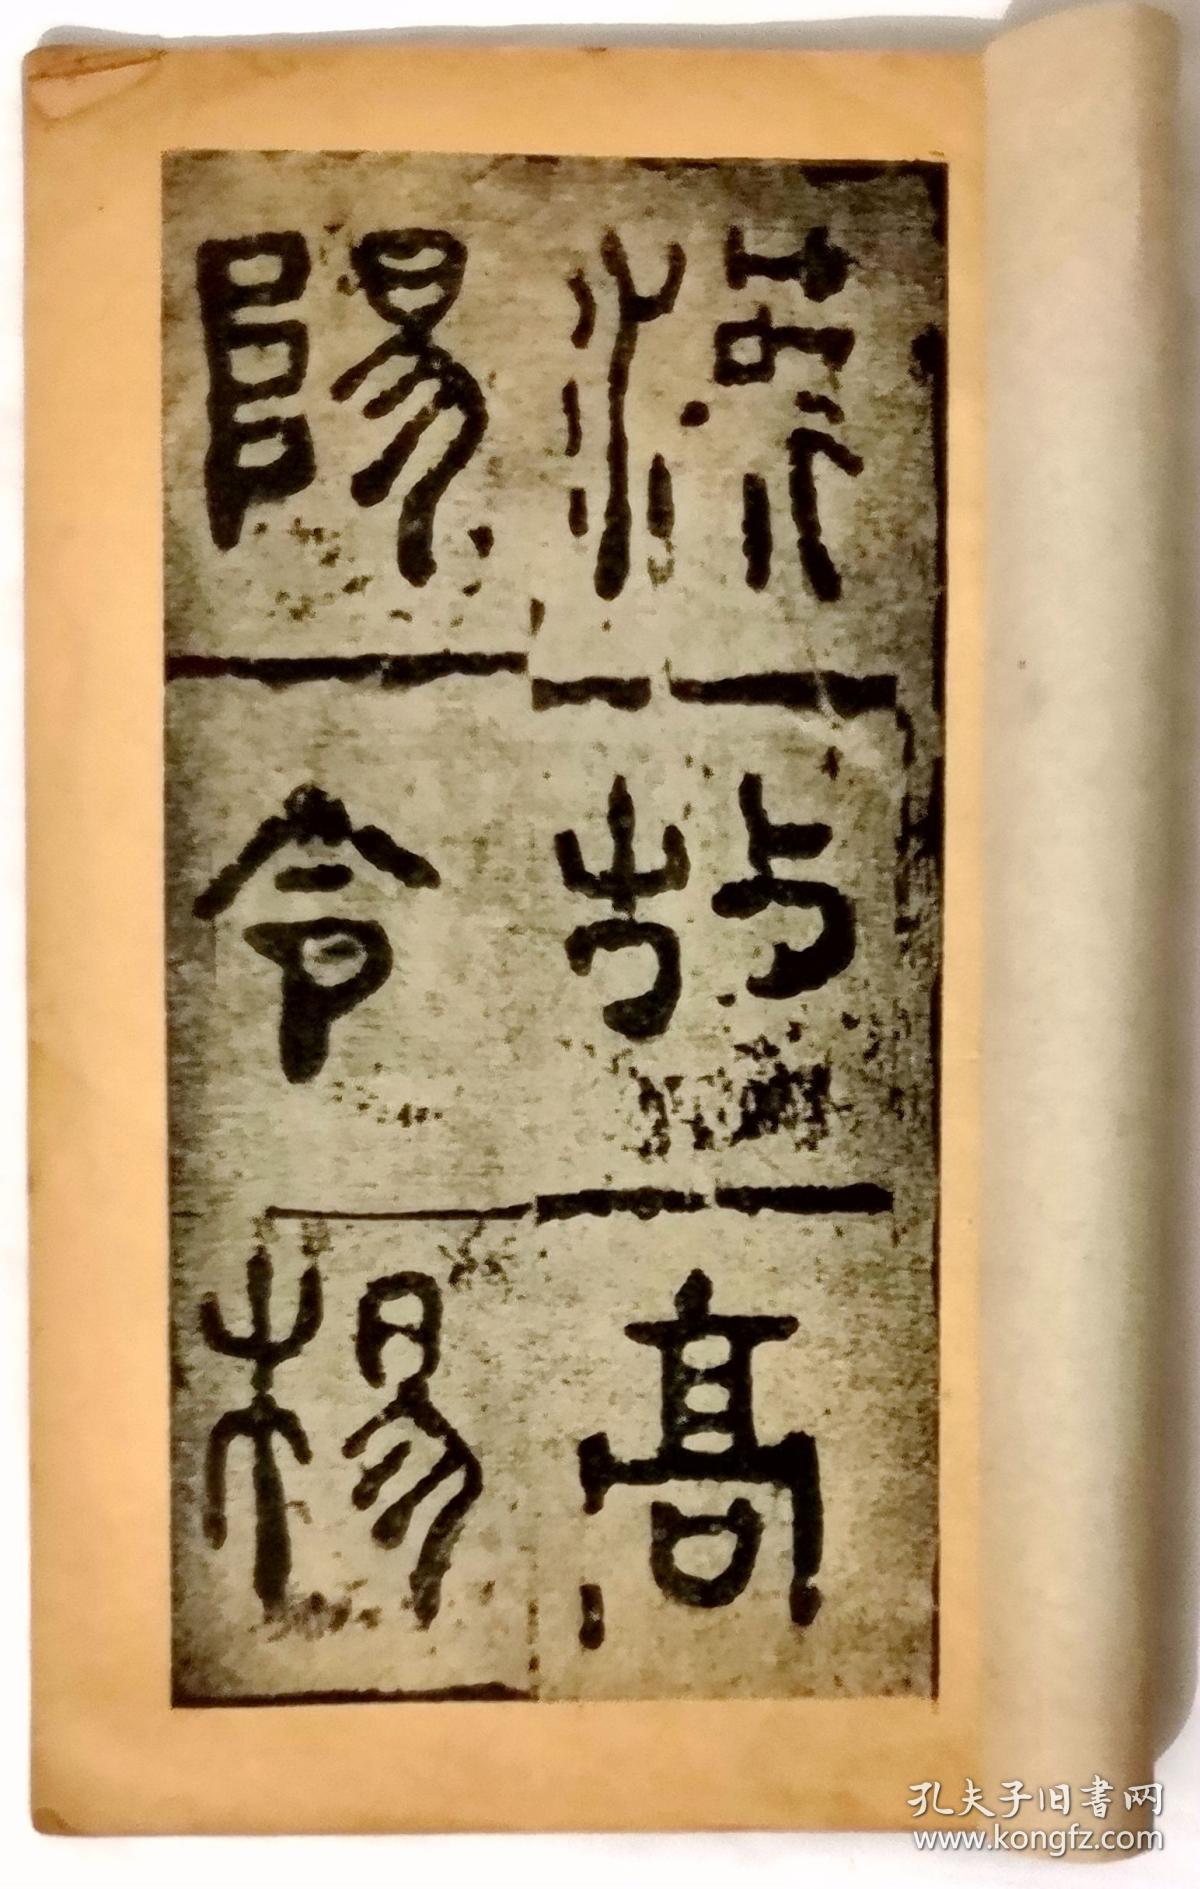 漢故高
陽令楊
孔夫子旧書网
www.kongfz.com